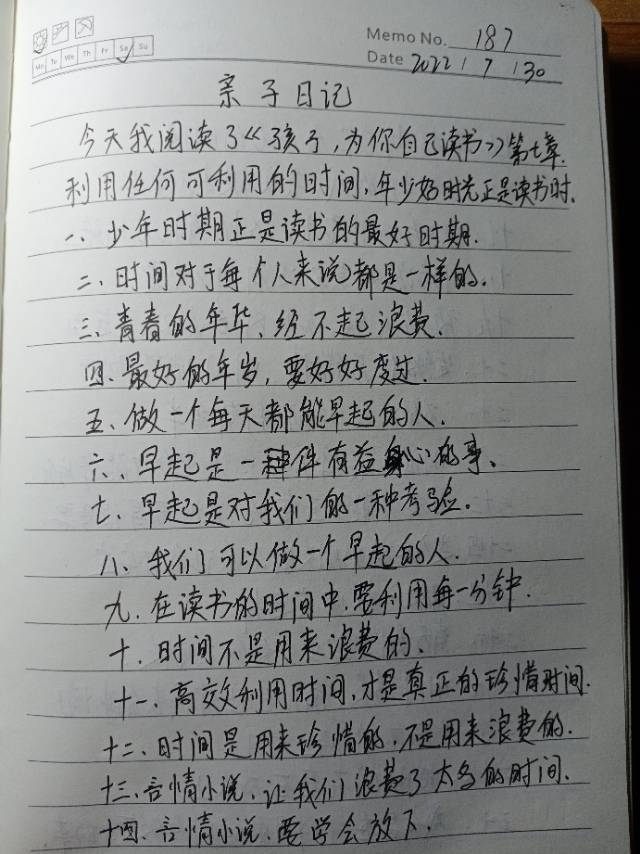 Memo No. 187
Mo Tu We Th Fr Sa Su
Date 2022 / 7 / 30
亲子日记
今天我阅读了《孩子,为你自己读书》第七章.
利用任何可利用的时间,年少好时光正是读书时.
一、少年时期正是读书的最好时期.
二、时间对于每个人来说都是一样的.
三、青春的年华、经不起浪费.
四、最好的年岁,要好好度过.
五、做一个每天都能早起的人.
六、早起是一件有益身心的事、
七、早起是对我们的一种考验.
八、我们可以做一个早起的人.
九、在读书的时间中.要利用每一分钟.
十、时间不是用来浪费的.
十一、高效利用时间,才是真正的珍惜时间.
十二、时间是用来珍惜的,不是用来浪费的.
十三、言情小说,让我们浪费了太多的时间.
十四、言情小说、要学会放下.